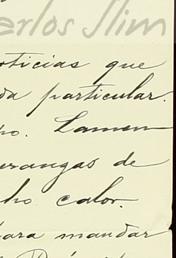 Carlos Slim
oticias que
da particular.
ho. Lamen
erangas de
ho calor.
para mandar